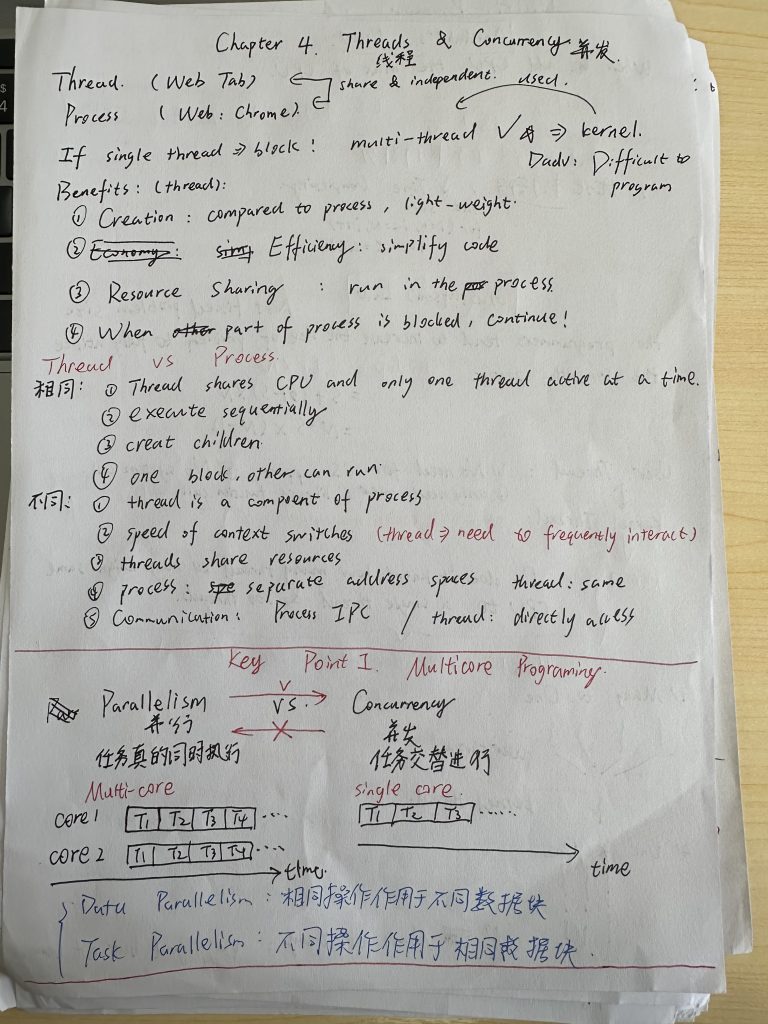 Chapter 4. Threads & Concurrency 并发.
线程
Thread. (Web Tab)
share & independent. used.
Process (Web: Chrome).
If single thread ⇒ block! multi-thread √ ⇒ kernel.
Dadv: Difficult to
program
Benefits: (thread):
① Creation: compared to process, light-weight.
② Economy: Efficiency: simplify code
③ Resource Sharing : run in the process
④ When other part of process is blocked, continue!
Thread vs Process.
相同: ① Thread shares CPU and only one thread active at a time.
② execute sequentially
③ creat children
④ one block, other can run
不同: ① thread is a compoent of process
② speed of context switches (thread ⇒ need to frequently interact)
③ threads share resources
④ process: separate address spaces thread: same
⑤ Communication: Process IPC / thread: directly access
Key Point 1. Multicore Programing.
Parallelism VS. Concurrency
并行 并发
任务真的同时执行 任务交替进行
Multi-core single core
core 1 T1 T2 T3 T4 ···· T1 T2 T3 ······
core 2 T1 T2 T3 T4 ····
time. time
Data Parallelism: 相同操作作用于不同数据块
Task Parallelism: 不同操作作用于相同数据块.